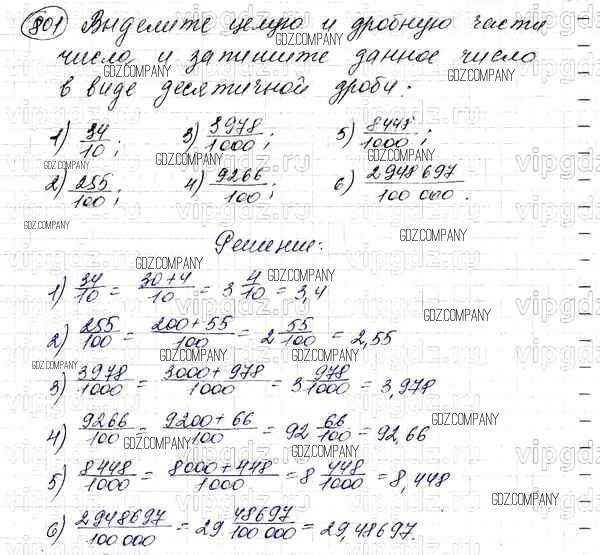 801 Выделите целую и дробную части
числа и запишите данное число
в виде десятичной дроби:
1) 34/10; 3) 3978/1000; 5) 8448/1000;
2) 255/100; 4) 9266/100; 6) 2948697/100 000.
Решение:
1) 34/10 = 30+4/10 = 3 4/10 = 3,4
2) 255/100 = 200+55/100 = 2 55/100 = 2,55
3) 3978/1000 = 3000+978/1000 = 3 978/1000 = 3,978
4) 9266/100 = 9200+66/100 = 92 66/100 = 92,66
5) 8448/1000 = 8000+448/1000 = 8 448/1000 = 8,448
6) 2948697/100 000 = 29 48697/100 000 = 29,48697.
GDZ.COMPANY
vipgdz.ru